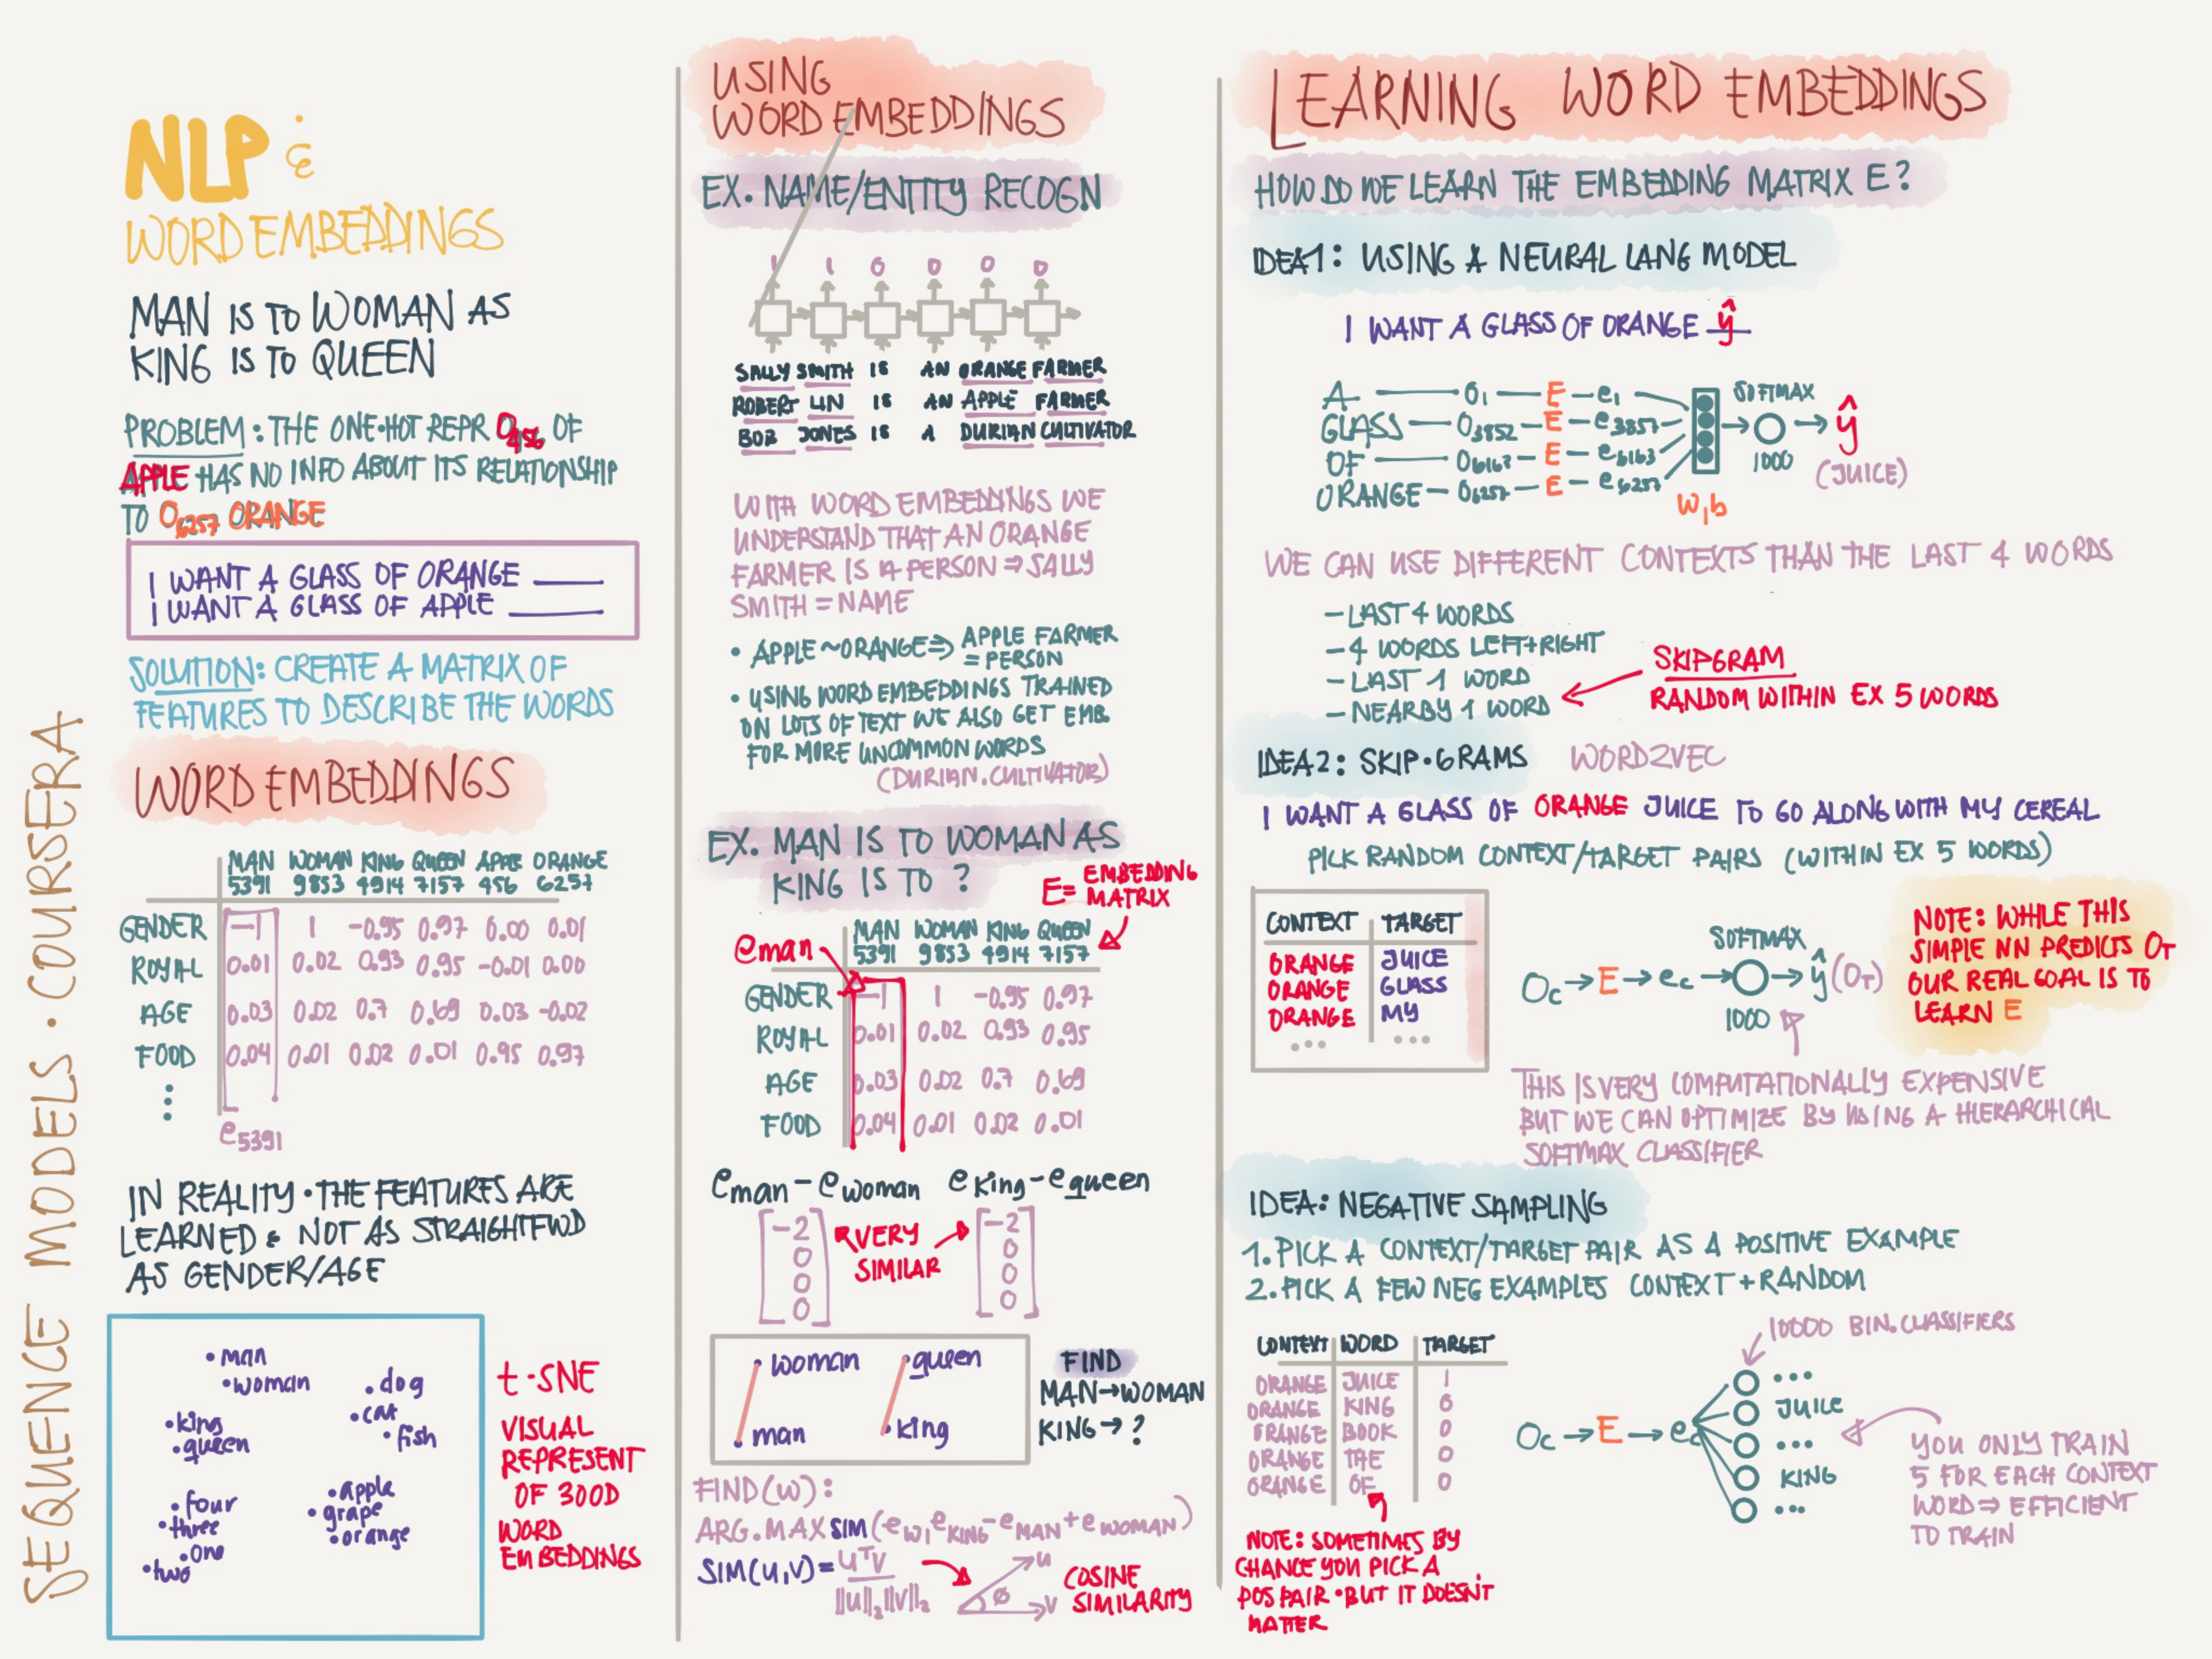 SEQUENCE MODELS · COURSERA
NLP &
WORD EMBEDDINGS
MAN IS TO WOMAN AS
KING IS TO QUEEN
PROBLEM: THE ONE-HOT REPR O456 OF
APPLE HAS NO INFO ABOUT ITS RELATIONSHIP
TO O6257 ORANGE
I WANT A GLASS OF ORANGE ____
I WANT A GLASS OF APPLE ____
SOLUTION: CREATE A MATRIX OF
FEATURES TO DESCRIBE THE WORDS
WORD EMBEDDINGS
MAN WOMAN KING QUEEN APPLE ORANGE
5391 9853 4914 7157 456 6257
GENDER -1 1 -0.95 0.97 0.00 0.01
ROYAL 0.01 0.02 0.93 0.95 -0.01 0.00
AGE 0.03 0.02 0.7 0.69 0.03 -0.02
FOOD 0.04 0.01 0.02 0.01 0.95 0.97
e5391
IN REALITY · THE FEATURES ARE
LEARNED & NOT AS STRAIGHTFWD
AS GENDER/AGE
man
woman
dog
cat
king
queen
fish
four
three
one
two
apple
grape
orange
t-SNE
VISUAL
REPRESENT
OF 300D
WORD
EMBEDDINGS
USING
WORD EMBEDDINGS
EX. NAME/ENTITY RECOGN
1 1 0 0 0 0
SALLY SMITH IS AN ORANGE FARMER
ROBERT LIN IS AN APPLE FARMER
BOB JONES IS A DURIAN CULTIVATOR
WITH WORD EMBEDDINGS WE
UNDERSTAND THAT AN ORANGE
FARMER IS A PERSON ⇒ SALLY
SMITH = NAME
• APPLE ~ ORANGE ⇒ APPLE FARMER
= PERSON
• USING WORD EMBEDDINGS TRAINED
ON LOTS OF TEXT WE ALSO GET EMB.
FOR MORE UNCOMMON WORDS
(DURIAN.CULTIVATOR)
EX. MAN IS TO WOMAN AS
KING IS TO ?
E= EMBEDDING
MATRIX
eman
MAN WOMAN KING QUEEN
5391 9853 4914 7157
GENDER -1 1 -0.95 0.97
ROYAL 0.01 0.02 0.93 0.95
AGE 0.03 0.02 0.7 0.69
FOOD 0.04 0.01 0.02 0.01
eman - ewoman eking - equeen
-2 -2
0 0
0 0
0 0
VERY
SIMILAR
woman
queen
man
king
FIND
MAN → WOMAN
KING → ?
FIND(W):
ARG.MAX SIM(ew, eKING - eMAN + eWOMAN)
SIM(U,V) = UᵀV
||U||₂ ||V||₂
u
ø
v
COSINE
SIMILARITY
LEARNING WORD EMBEDDINGS
HOW DO WE LEARN THE EMBEDDING MATRIX E?
IDEA1: USING A NEURAL LANG MODEL
I WANT A GLASS OF ORANGE ŷ
A — O1 — E — e1
GLASS — O3852 — E — e3857
OF — O6167 — E — e6163
ORANGE — O6257 — E — e6257
W,b
SOFTMAX
1000
ŷ
(JUICE)
WE CAN USE DIFFERENT CONTEXTS THAN THE LAST 4 WORDS
- LAST 4 WORDS
- 4 WORDS LEFT+RIGHT
- LAST 1 WORD
- NEARBY 1 WORD
SKIPGRAM
RANDOM WITHIN EX 5 WORDS
IDEA2: SKIP·GRAMS WORD2VEC
I WANT A GLASS OF ORANGE JUICE TO GO ALONG WITH MY CEREAL
PICK RANDOM CONTEXT/TARGET PAIRS (WITHIN EX 5 WORDS)
CONTEXT TARGET
ORANGE JUICE
ORANGE GLASS
ORANGE MY
... ...
Oc → E → ec → ŷ (OT)
SOFTMAX
1000
NOTE: WHILE THIS
SIMPLE NN PREDICTS OT
OUR REAL GOAL IS TO
LEARN E
THIS IS VERY COMPUTATIONALLY EXPENSIVE
BUT WE CAN OPTIMIZE BY USING A HIERARCHICAL
SOFTMAX CLASSIFIER
IDEA: NEGATIVE SAMPLING
1. PICK A CONTEXT/TARGET PAIR AS A POSITIVE EXAMPLE
2. PICK A FEW NEG EXAMPLES CONTEXT + RANDOM
CONTEXT WORD TARGET
ORANGE JUICE 1
ORANGE KING 0
ORANGE BOOK 0
ORANGE THE 0
ORANGE OF 0
NOTE: SOMETIMES BY
CHANCE YOU PICK A
POS PAIR · BUT IT DOESN'T
MATTER
Oc → E → ec
10000 BIN.CLASSIFIERS
...
JUICE
...
KING
...
YOU ONLY TRAIN
5 FOR EACH CONTEXT
WORD ⇒ EFFICIENT
TO TRAIN